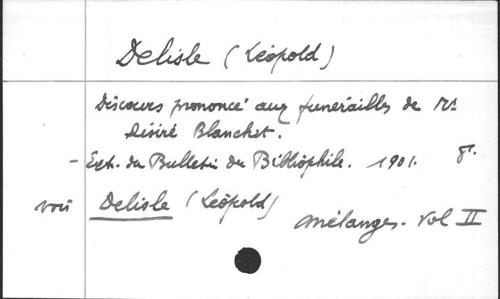 Delisle (Léopold)
Discours prononcé aux funérailles de Mr
Désiré Blanchet.
- Ext. du Bulletin du Bibliophile. 1901. 8°.
voir Delisle (Léopold)
Mélanges. Vol II